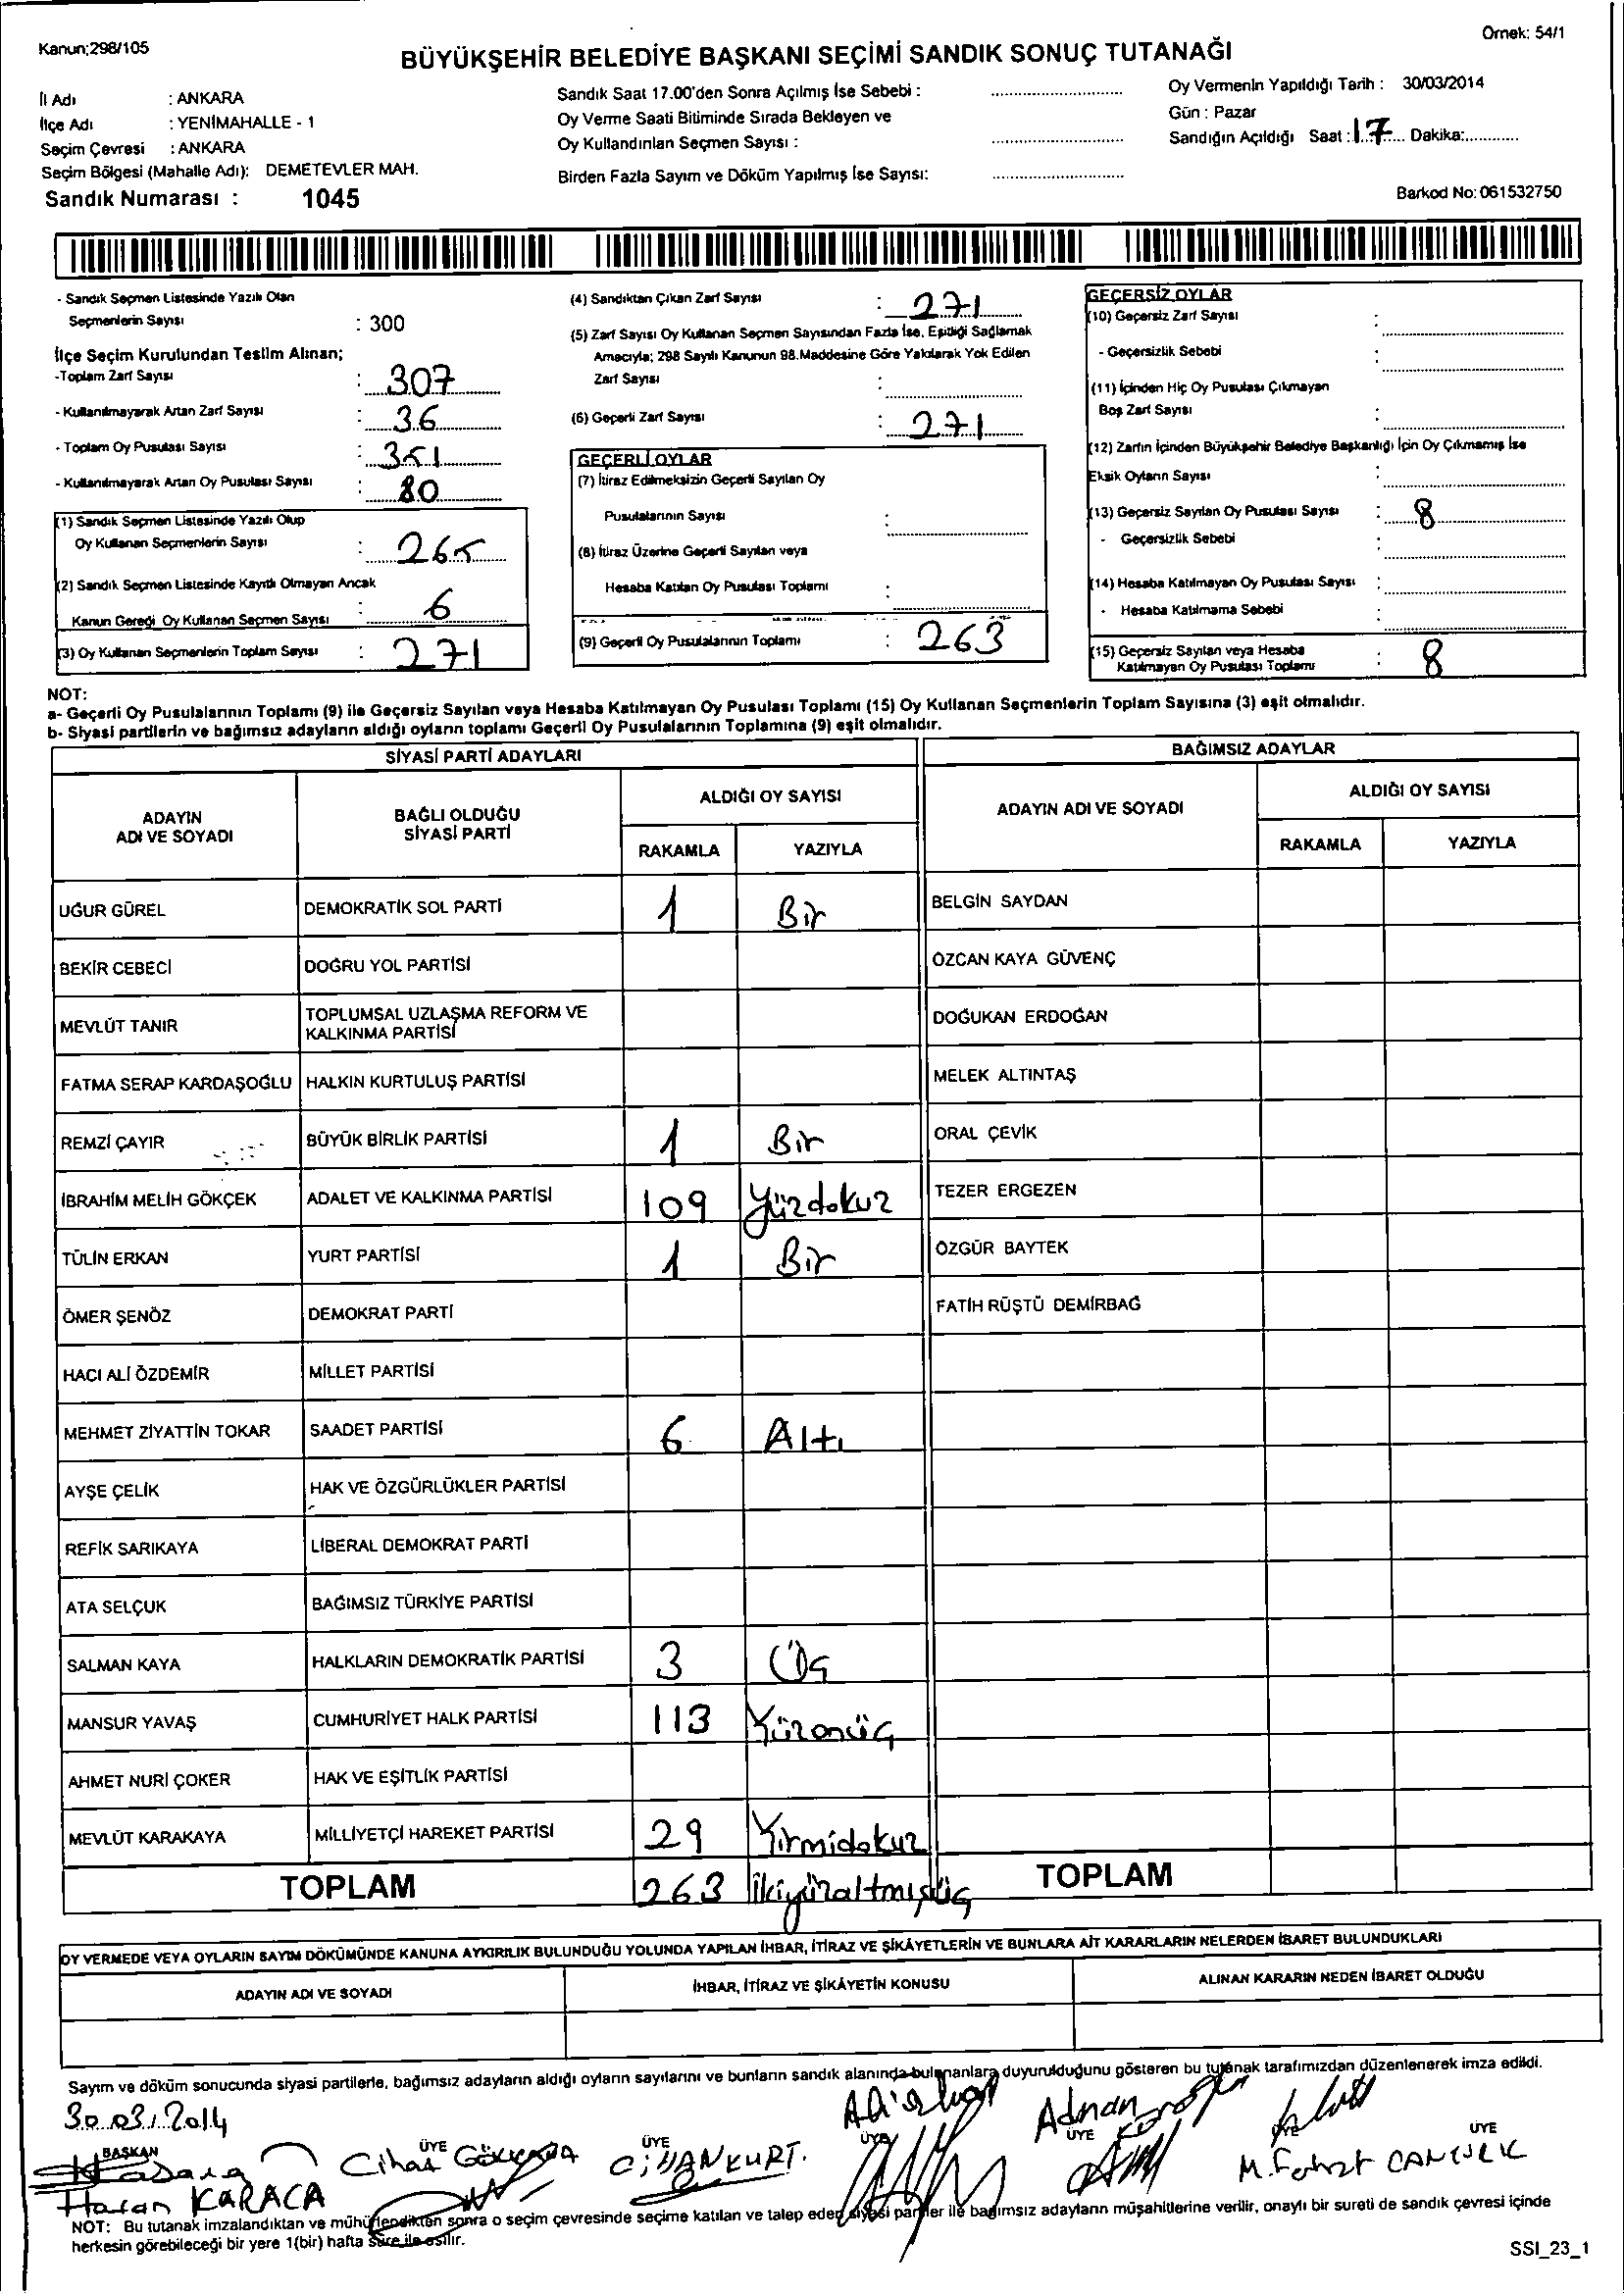 Kanun;298/105
Örnek: 54/1
BÜYÜKŞEHİR BELEDİYE BAŞKANI SEÇİMİ SANDIK SONUÇ TUTANAĞI
İl Adı : ANKARA
İlçe Adı : YENİMAHALLE - 1
Seçim Çevresi : ANKARA
Seçim Bölgesi (Mahalle Adı): DEMETEVLER MAH.
Sandık Numarası : 1045
Sandık Saat 17.00'den Sonra Açılmış İse Sebebi :
Oy Verme Saati Bitiminde Sırada Bekleyen ve
Oy Kullandırılan Seçmen Sayısı :
Birden Fazla Sayım ve Döküm Yapılmış İse Sayısı:
Oy Vermenin Yapıldığı Tarih : 30/03/2014
Gün : Pazar
Sandığın Açıldığı Saat : 17 Dakika:
Barkod No: 061532750
- Sandık Seçmen Listesinde Yazılı Olan
Seçmenlerin Sayısı : 300
İlçe Seçim Kurulundan Teslim Alınan;
-Toplam Zarf Sayısı : 307
- Kullanılmayarak Artan Zarf Sayısı : 36
- Toplam Oy Pusulası Sayısı : 351
- Kullanılmayarak Artan Oy Pusulası Sayısı : 80
(1) Sandık Seçmen Listesinde Yazılı Olup
Oy Kullanan Seçmenlerin Sayısı : 265
(2) Sandık Seçmen Listesinde Kayıtlı Olmayan Ancak
Kanun Gereği Oy Kullanan Seçmen Sayısı : 6
(3) Oy Kullanan Seçmenlerin Toplam Sayısı : 271
(4) Sandıktan Çıkan Zarf Sayısı : 271
(5) Zarf Sayısı Oy Kullanan Seçmen Sayısından Fazla İse, Eşitliği Sağlamak
Amacıyla; 298 Sayılı Kanunun 98.Maddesine Göre Yakılarak Yok Edilen
Zarf Sayısı :
(6) Geçerli Zarf Sayısı : 271
GEÇERLİ OYLAR
(7) İtiraz Edilmeksizin Geçerli Sayılan Oy
Pusulalarının Sayısı :
(8) İtiraz Üzerine Geçerli Sayılan veya
Hesaba Katılan Oy Pusulası Toplamı :
(9) Geçerli Oy Pusulalarının Toplamı : 263
GEÇERSİZ OYLAR
(10) Geçersiz Zarf Sayısı :
- Geçersizlik Sebebi :
(11) İçinden Hiç Oy Pusulası Çıkmayan
Boş Zarf Sayısı :
(12) Zarfın İçinden Büyükşehir Belediye Başkanlığı İçin Oy Çıkmamış İse
Eksik Oyların Sayısı :
(13) Geçersiz Sayılan Oy Pusulası Sayısı : 8
- Geçersizlik Sebebi :
(14) Hesaba Katılmayan Oy Pusulası Sayısı :
- Hesaba Katılmama Sebebi :
(15) Geçersiz Sayılan veya Hesaba
Katılmayan Oy Pusulası Toplamı : 8
NOT:
a- Geçerli Oy Pusulalarının Toplamı (9) ile Geçersiz Sayılan veya Hesaba Katılmayan Oy Pusulası Toplamı (15) Oy Kullanan Seçmenlerin Toplam Sayısına (3) eşit olmalıdır.
b- Siyasi partilerin ve bağımsız adayların aldığı oyların toplamı Geçerli Oy Pusulalarının Toplamına (9) eşit olmalıdır.
SİYASİ PARTİ ADAYLARI
ADAYIN
ADI VE SOYADI
BAĞLI OLDUĞU
SİYASİ PARTİ
ALDIĞI OY SAYISI
RAKAMLA YAZIYLA
UĞUR GÜREL DEMOKRATİK SOL PARTİ 1 Bir
BEKİR CEBECİ DOĞRU YOL PARTİSİ
MEVLÜT TANIR TOPLUMSAL UZLAŞMA REFORM VE
KALKINMA PARTİSİ
FATMA SERAP KARDAŞOĞLU HALKIN KURTULUŞ PARTİSİ
REMZİ ÇAYIR BÜYÜK BİRLİK PARTİSİ 1 Bir
İBRAHİM MELİH GÖKÇEK ADALET VE KALKINMA PARTİSİ 109 Yüzdokuz
TÜLİN ERKAN YURT PARTİSİ 1 Bir
ÖMER ŞENÖZ DEMOKRAT PARTİ
HACI ALİ ÖZDEMİR MİLLET PARTİSİ
MEHMET ZİYATTİN TOKAR SAADET PARTİSİ 6 Altı
AYŞE ÇELİK HAK VE ÖZGÜRLÜKLER PARTİSİ
REFİK SARIKAYA LİBERAL DEMOKRAT PARTİ
ATA SELÇUK BAĞIMSIZ TÜRKİYE PARTİSİ
SALMAN KAYA HALKLARIN DEMOKRATİK PARTİSİ 3 Üç
MANSUR YAVAŞ CUMHURİYET HALK PARTİSİ 113 Yüzonüç
AHMET NURİ ÇOKER HAK VE EŞİTLİK PARTİSİ
MEVLÜT KARAKAYA MİLLİYETÇİ HAREKET PARTİSİ 29 Yirmidokuz
TOPLAM 263 İkiyüzaltmışüç
BAĞIMSIZ ADAYLAR
ADAYIN ADI VE SOYADI
ALDIĞI OY SAYISI
RAKAMLA YAZIYLA
BELGİN SAYDAN
ÖZCAN KAYA GÜVENÇ
DOĞUKAN ERDOĞAN
MELEK ALTINTAŞ
ORAL ÇEVİK
TEZER ERGEZEN
ÖZGÜR BAYTEK
FATİH RÜŞTÜ DEMİRBAĞ
TOPLAM
OY VERMEDE VEYA OYLARIN SAYIM DÖKÜMÜNDE KANUNA AYKIRILIK BULUNDUĞU YOLUNDA YAPILAN İHBAR, İTİRAZ VE ŞİKÂYETLERİN VE BUNLARA AİT KARARLARIN NELERDEN İBARET BULUNDUKLARI
ADAYIN ADI VE SOYADI
İHBAR, İTİRAZ VE ŞİKÂYETİN KONUSU
ALINAN KARARIN NEDEN İBARET OLDUĞU
Sayım ve döküm sonucunda siyasi partilerle, bağımsız adayların aldığı oyların sayılarını ve bunların sandık alanında bulunanlara duyurulduğunu gösteren bu tutanak tarafımızdan düzenlenerek imza edildi.
30.03.2014
BAŞKAN ÜYE ÜYE ÜYE ÜYE ÜYE ÜYE
Hasan KARACA
Cihan
CİHAN KURT.
Adnan
NOT: Bu tutanak imzalandıktan ve mühürlendikten sonra o seçim çevresinde seçime katılan ve talep eden siyasi partiler ile bağımsız adayların müşahitlerine verilir, onaylı bir sureti de sandık çevresi içinde
herkesin görebileceği bir yere 1(bir) hafta süre ile asılır.
SSI_23_1